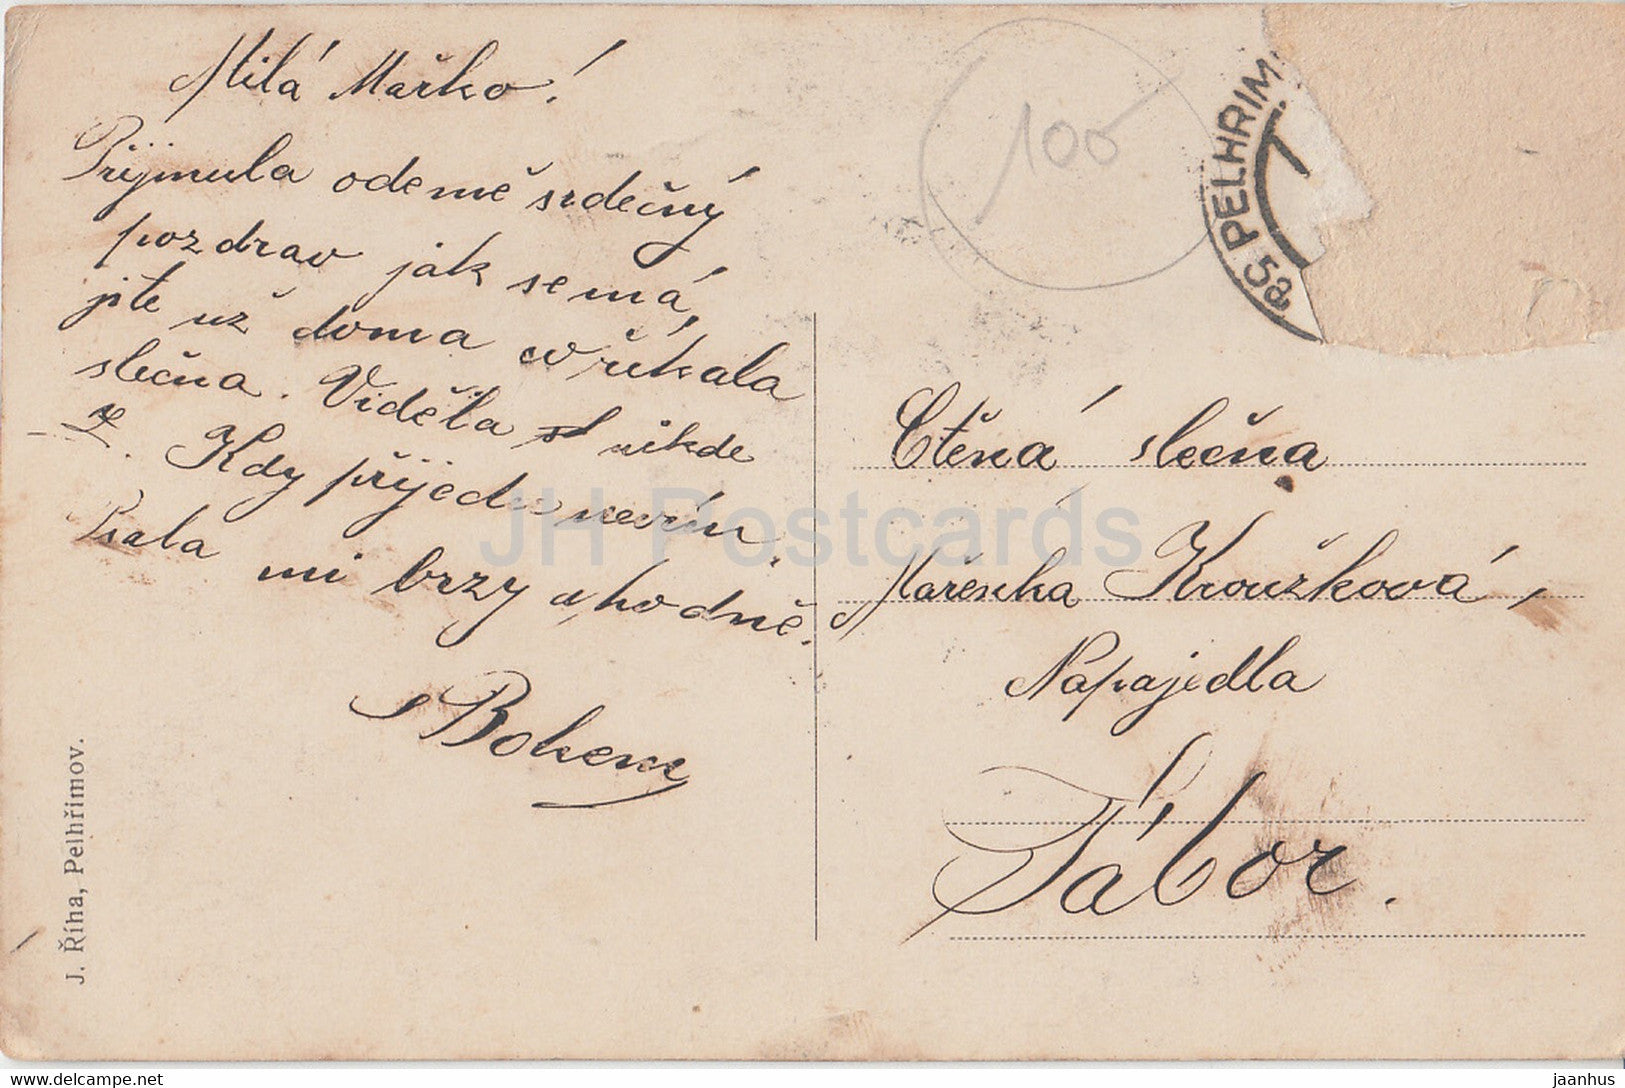 Milá Mařko!
Přijmula odemě srdečný
pozdrav jak se má,
jste už doma říkala
slečna. Viděla nikde
Kdy přijedu nevím.
Psala mi brzy a hodně.
100
PELHRIM
5a
Ctěná slečna
Mařenka Kroužková,
Napajedla
Tábor.
J. Říha, Pelhřimov.
JH Postcards
www.delcampe.net
jaanhus